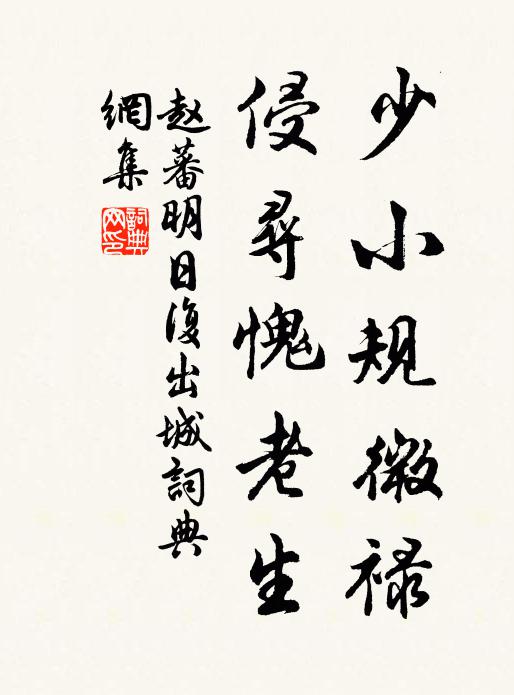 少小規微禄
侵尋愧老生
赵蕃明日復出城詞典
網集
詞典
网印